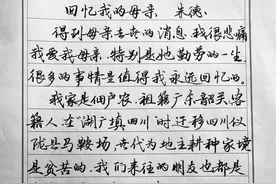 回忆我的母亲 朱德
得到母亲去世的消息,我很悲痛
我爱我母亲,特别是她勤劳的一生
很多的事情是值得我永远回忆的。
我家是佃户农,祖籍广东韶关客
籍人,在“湖广填四川”时迁移四川仪
陇县马鞍场,世代为地主耕种,家境
是贫苦的,我们来往的朋友也都是